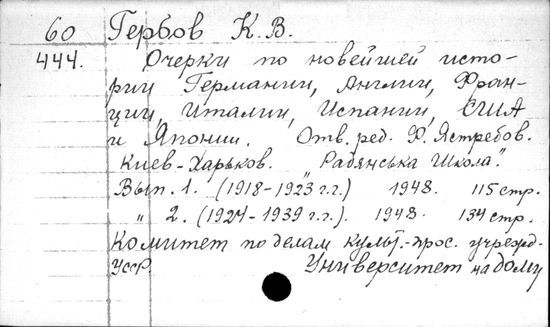 60 Гербов К. В.
444. Очерки по новейшей исто-
рии Германии, Англии, Фран-
ции, Италии, Испании, США
и Японии. Отв. ред. Ф. Ястребов.
Киев-Харьков. "Радянська Школа".
Вып. 1. (1918-1923 г.г.) 1948. 115 стр.
" 2. (1924-1939 г.г.) 1948. 134 стр.
Комитет по делам культ.-прос. учрежд.
УССР. Университет на дому